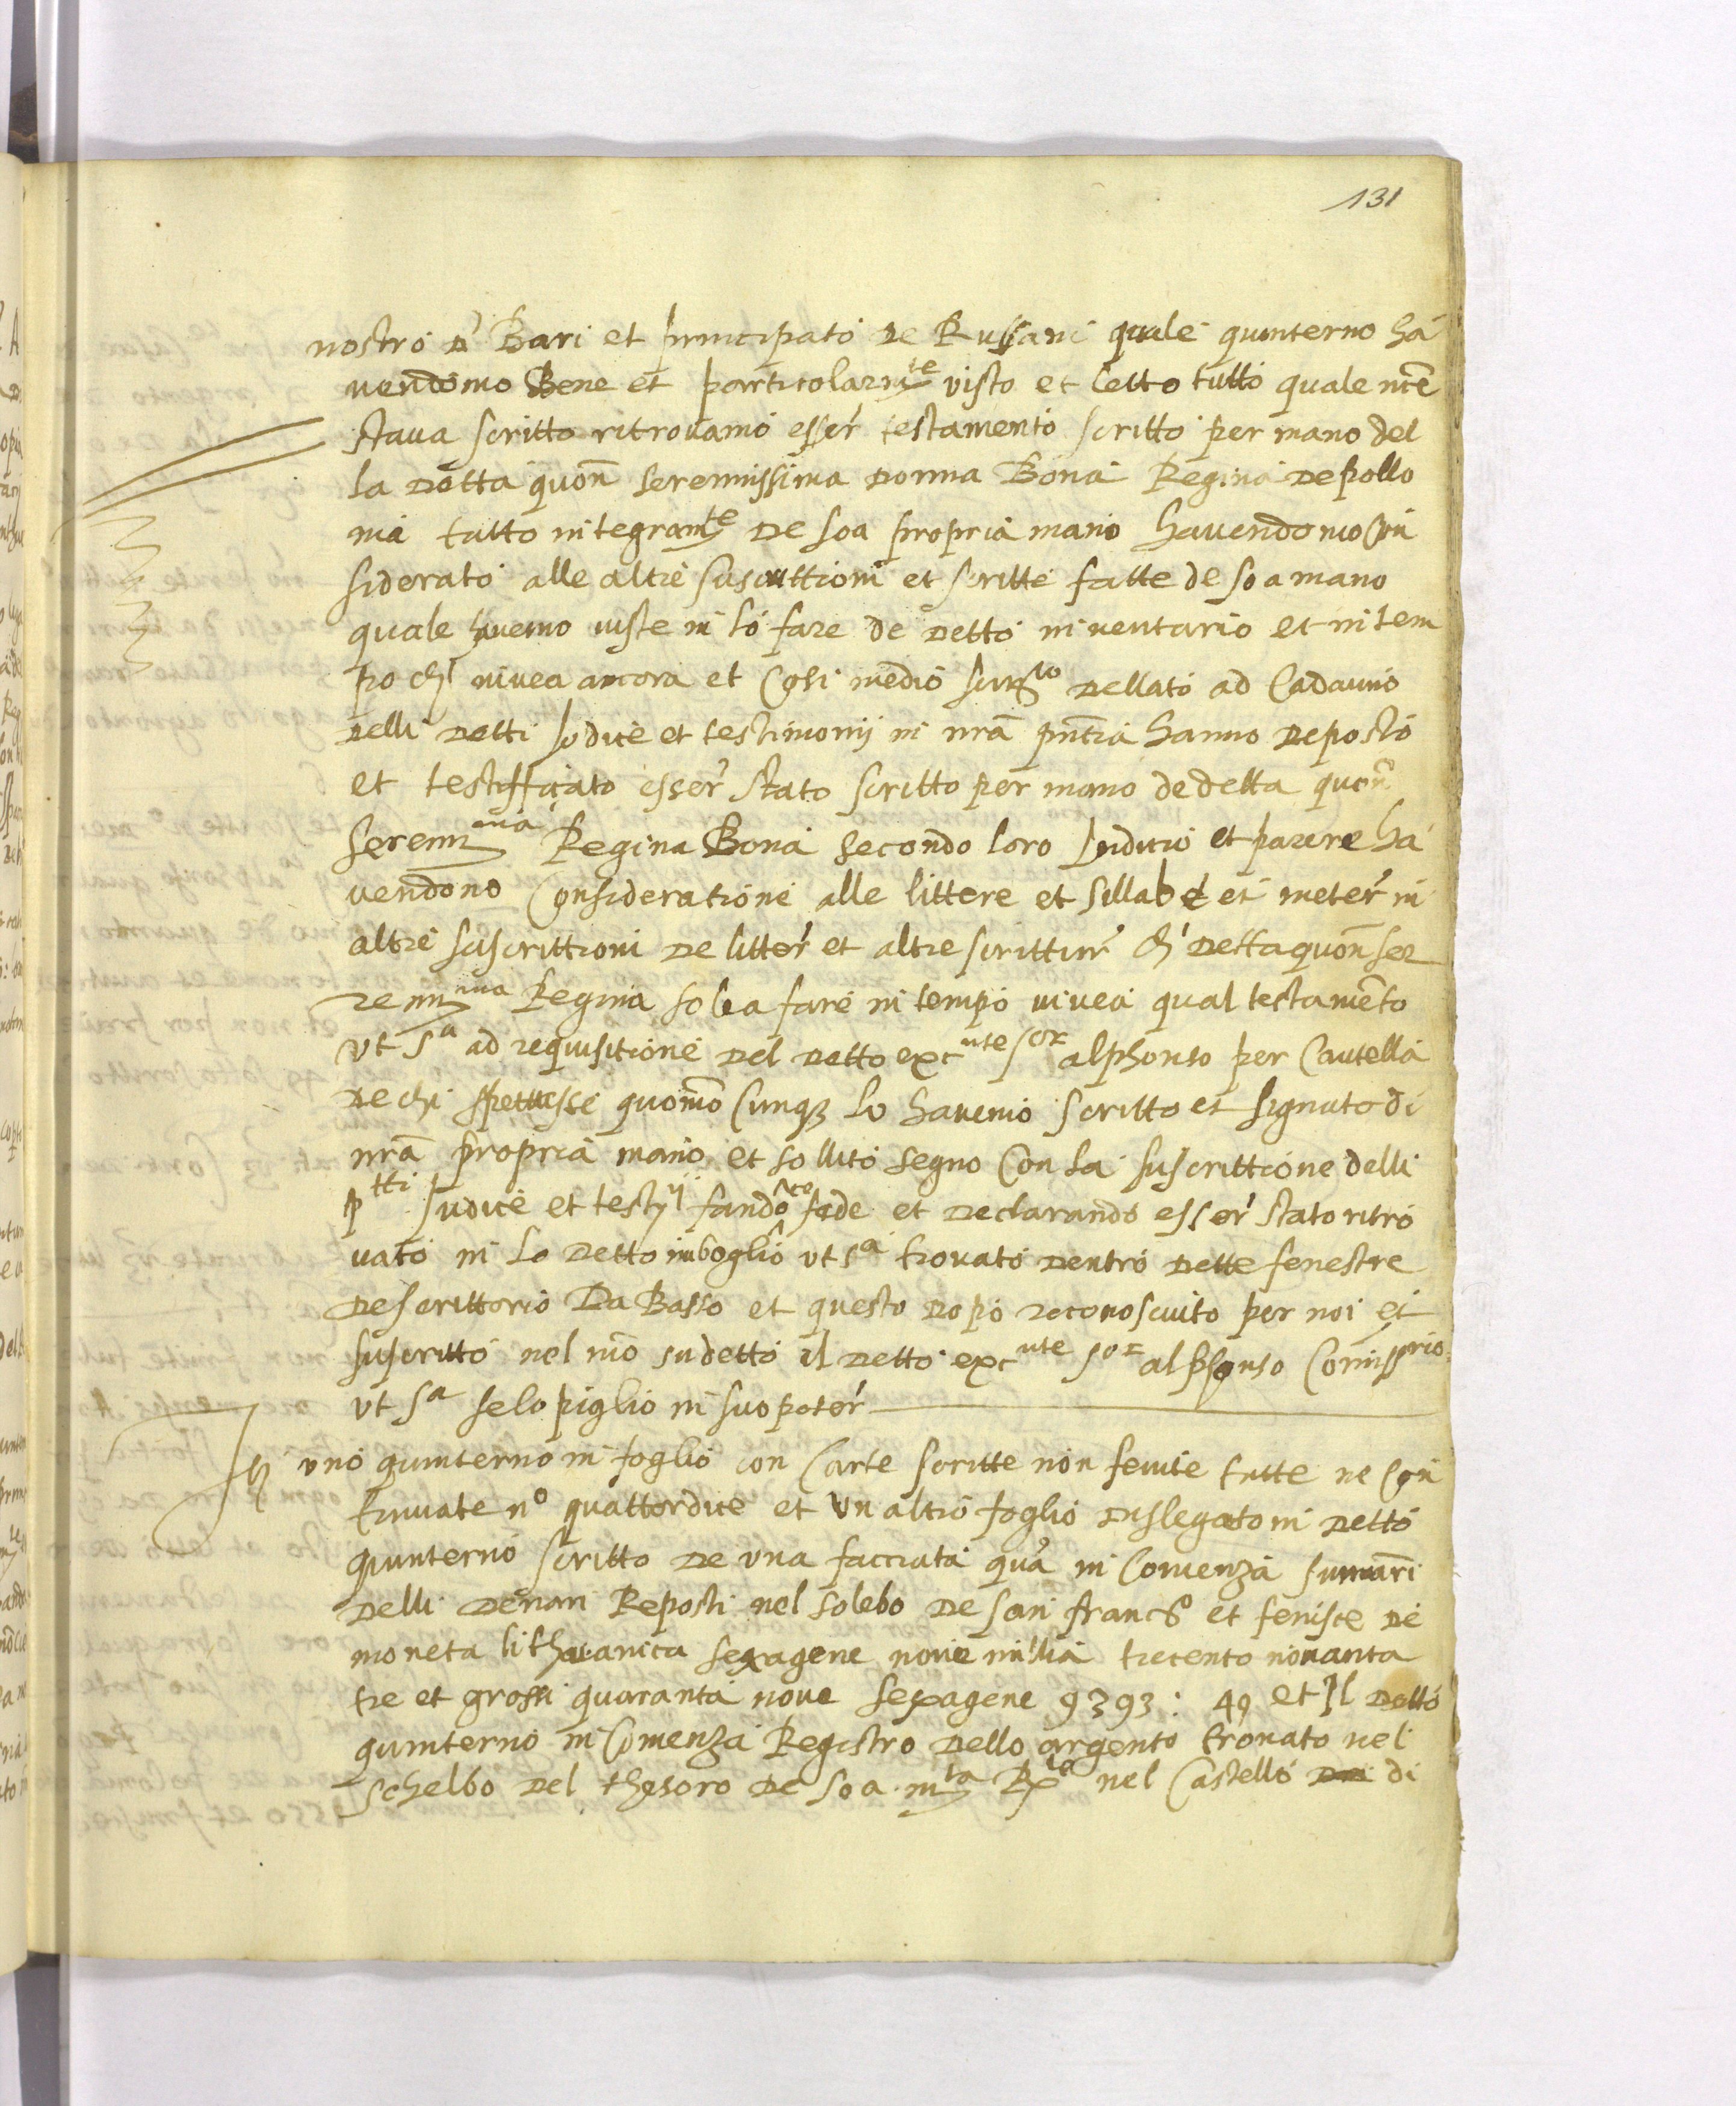 131
nostro d' Bari et principato de Russani quale quinterno ha
vendomo Bene et particolarmte visto et letto tutto quale mte
staua scritto ritrouamo esser testamento scritto per mano del
la detta quon serennissima donna Bona Regina de pollo
nia tutto integramte de soa propria mano hauendomo con
siderato alle altre suscrittioni et scritte fatte de soa mano
quale hauemo viste in lo fare de detto inuentario et in tem
po ch' viuea ancora et Cosi medio dellato ad Cadauno
delli detti Judice et testimonij in nra pntia hanno deposto
et testifficato esser stato scritto per mano de detta quon
Serenima Regina Bona secondo loro Juditio et parere ha
vendono Consideratione alle littere et sillabe et meter in
altre suscrittioni de litter et altre scrittur ch' detta quon ser
renima Regina solea fare in tempo viuea qual testamento
vt sa ad requisitione del detto excnte sor alphonso per Cautella
de chi spettasse quomo Cunq lo hauemo scritto et signato di
nra propria mano et sollito segno Con la suscrittione delli
ptti Judice et testij fando nco fede et declarando esser stato ritro
vato in lo detto imboglio vt sa trouato dentro dette fenestre
de scrittorio Da Basso et questo dopo reconosciuto per noi et
suscritto nel mo sudetto il detto excnte sor alphonso Comissrio
vt sa se lo piglio in suo poter
It vno quinterno in foglio con Carte scritte non fenite tutte ne Con
tinuate no quattordice et vn altro foglio dislegato in detto
quinterno scritto de vna facciata qua in Comenza sumari
delli denari Reposti nel solebo de san francso et fenisce de
moneta lithuanica sexagene noue millia trecento nonanta
tre et grossi quaranta noue sexagene 9393 : 49 et Il detto
quinterno in Comenza Registro dello argento trouato nel
schelbo del thesoro de soa mta Rle nel Castello di